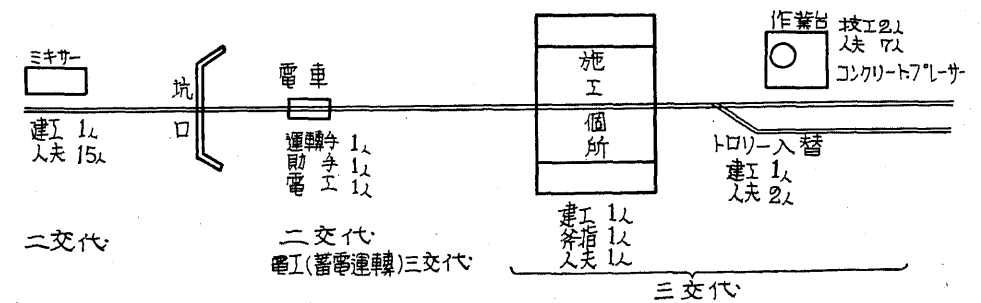 ミキサー
建工 1人
人夫 15人
二交代
坑口
電車
運轉手 1人
助手 1人
電工 1人
二交代
電工(蓄電運轉)三交代
施工個所
建工 1人
斧指 1人
人夫 1人
作業台
技工2人
人夫 7人
コンクリートプレーサー
トロリー入替
建工 1人
人夫 2人
三交代